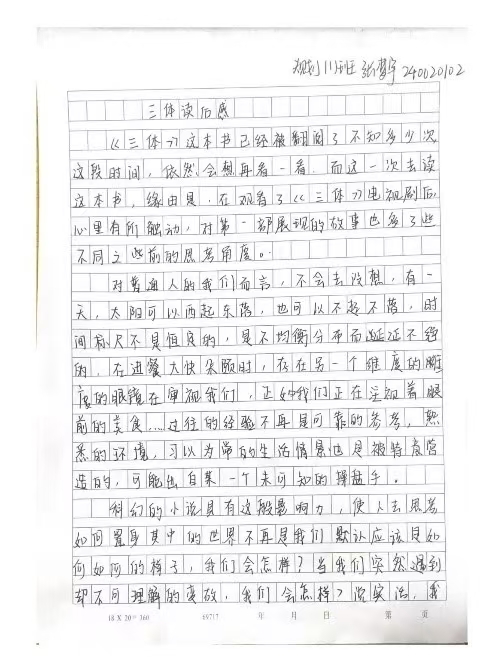 规划11班 张梦宇 240020102
三体读后感
《三体》这本书已经被翻阅了不知多少次
这段时间，依然会想再看一看。而这一次去读
这本书，缘由是，在观看了《三体》电视剧后，
心里有所触动，对第一部展现的故事也多了些
不同之些前的思考角度。
对普通人的我们而言，不会去设想，有一
天，太阳可以西起东落，也可以不起不落，时
间标尺不是恒良的，是不均衡分布而延证不终
的，在进餐大快朵颐时，存在另一个维度的
度的眼镜在审视我们，正如我们正在注视着眼
前的美食……过往的经验不再是可靠的参考，熟
悉的环境，习以为常的生活情景也是被特意营
造的，可能出自某一个未可知的操盘手。
科幻的小说具有这般影响力，使人去思考
如何置身其中的世界不再是我们默认应该是如
何如何的样子，我们会怎样？当我们突然遇到
却不可理解的变故，我们会怎样？说实话，我
18×20=360 69717 年 月 日 第 页